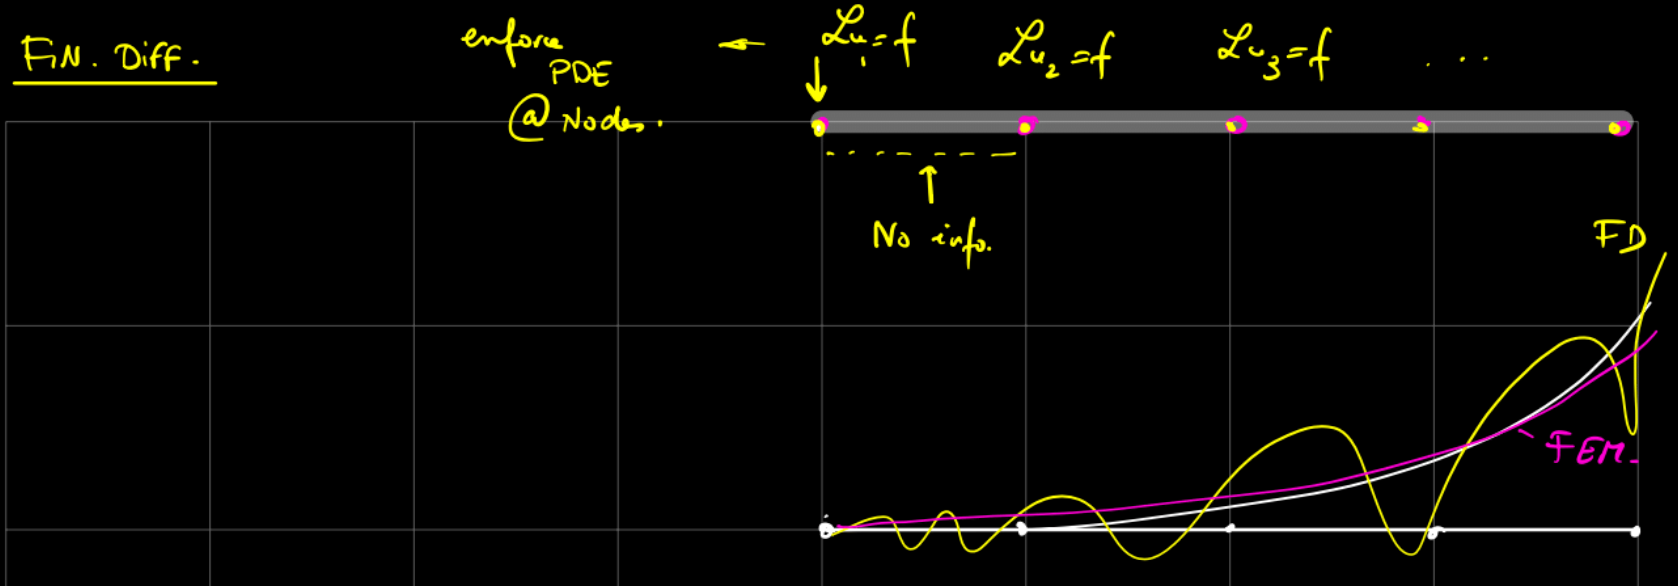 FIN. Diff.
enforce
PDE
@ Nodes.
←
ℒu₁=f
ℒu₂=f
ℒu₃=f
....
No info.
FD
FEM.